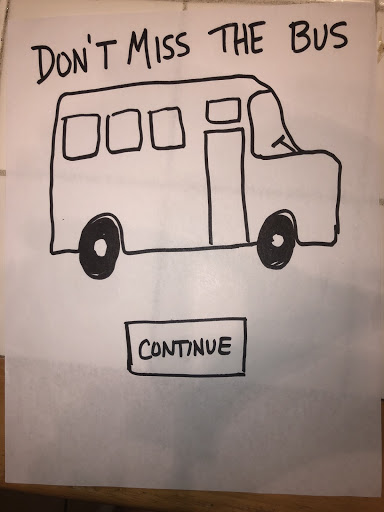 DON'T MISS THE BUS
CONTINUE